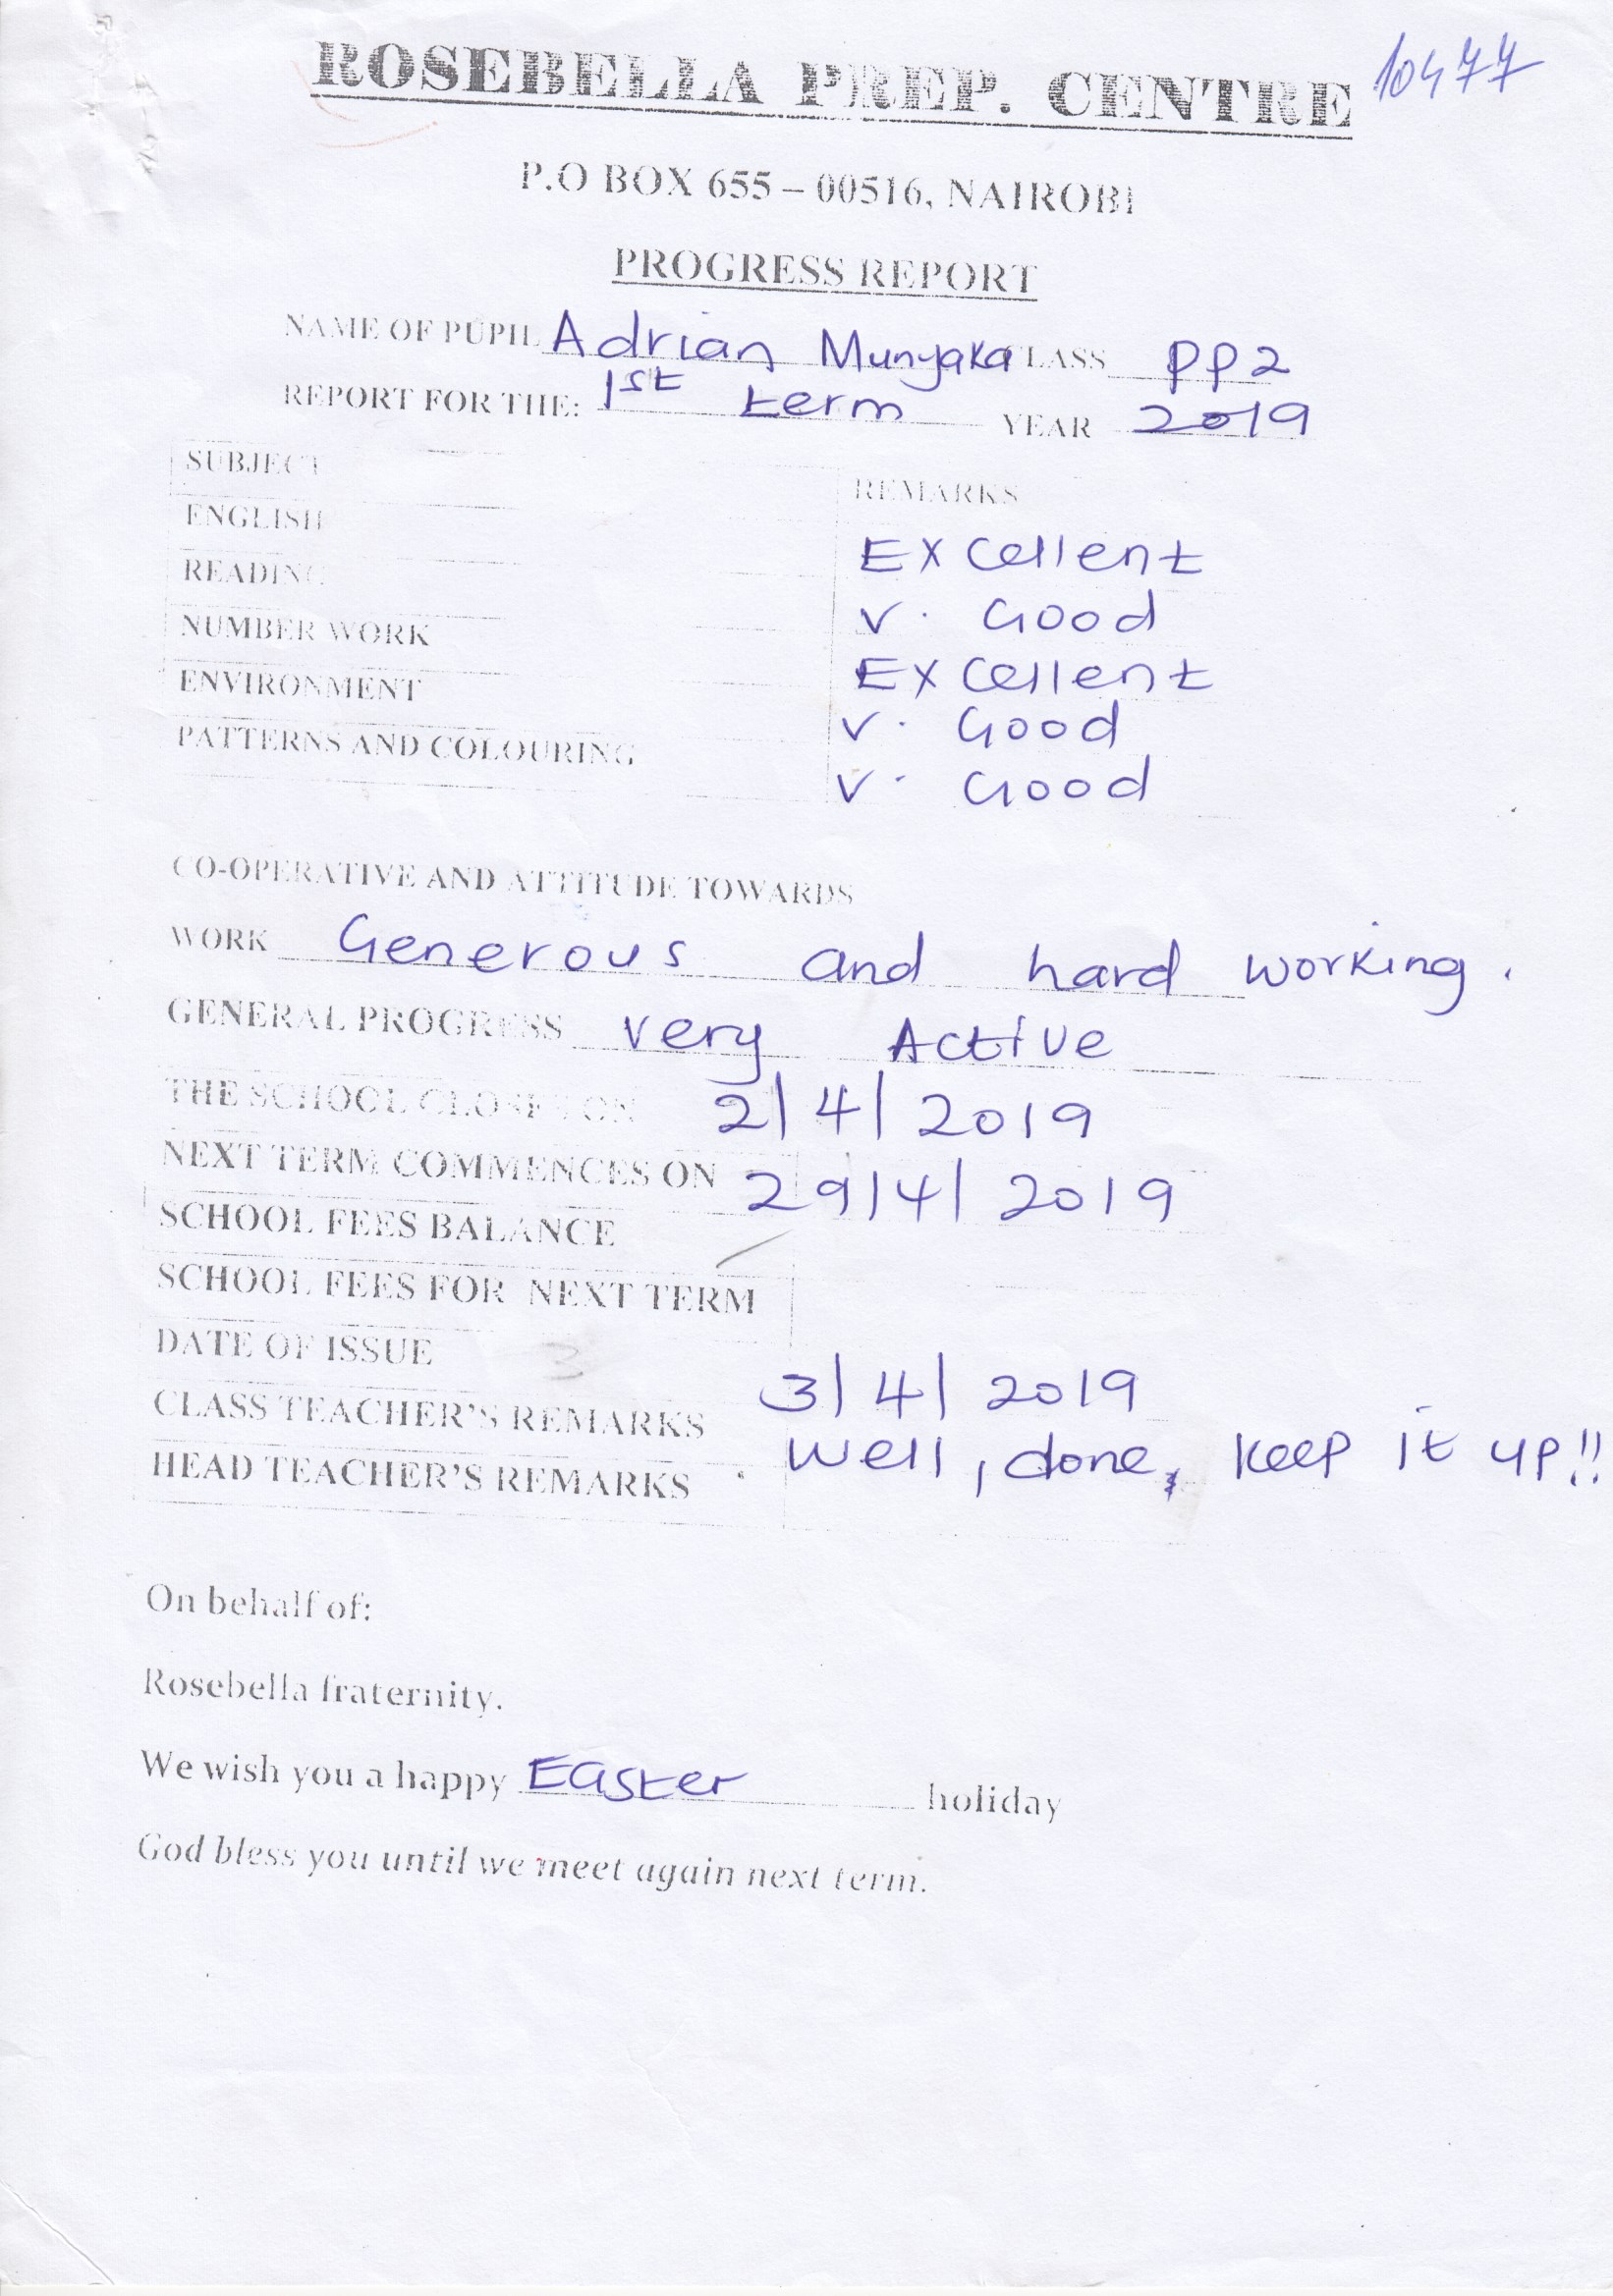 ROSEBELLA PREP. CENTRE 10477
P.O BOX 655 – 00516, NAIROBI
PROGRESS REPORT
NAME OF PUPIL Adrian Munyaka CLASS PP2
REPORT FOR THE: 1st term YEAR 2019
SUBJECT REMARKS
ENGLISH Excellent
READING V. Good
NUMBER WORK Excellent
ENVIRONMENT V. Good
PATTERNS AND COLOURING V. Good
CO-OPERATIVE AND ATTITUDE TOWARDS
WORK Generous and hard working.
GENERAL PROGRESS Very Active
THE SCHOOL CLOSES ON 2/4/2019
NEXT TERM COMMENCES ON 29/4/2019
SCHOOL FEES BALANCE
SCHOOL FEES FOR NEXT TERM
DATE OF ISSUE 3 3/4/2019
CLASS TEACHER'S REMARKS Well, done, keep it up!!
HEAD TEACHER'S REMARKS
On behalf of:
Rosebella fraternity.
We wish you a happy Easter holiday
God bless you until we meet again next term.